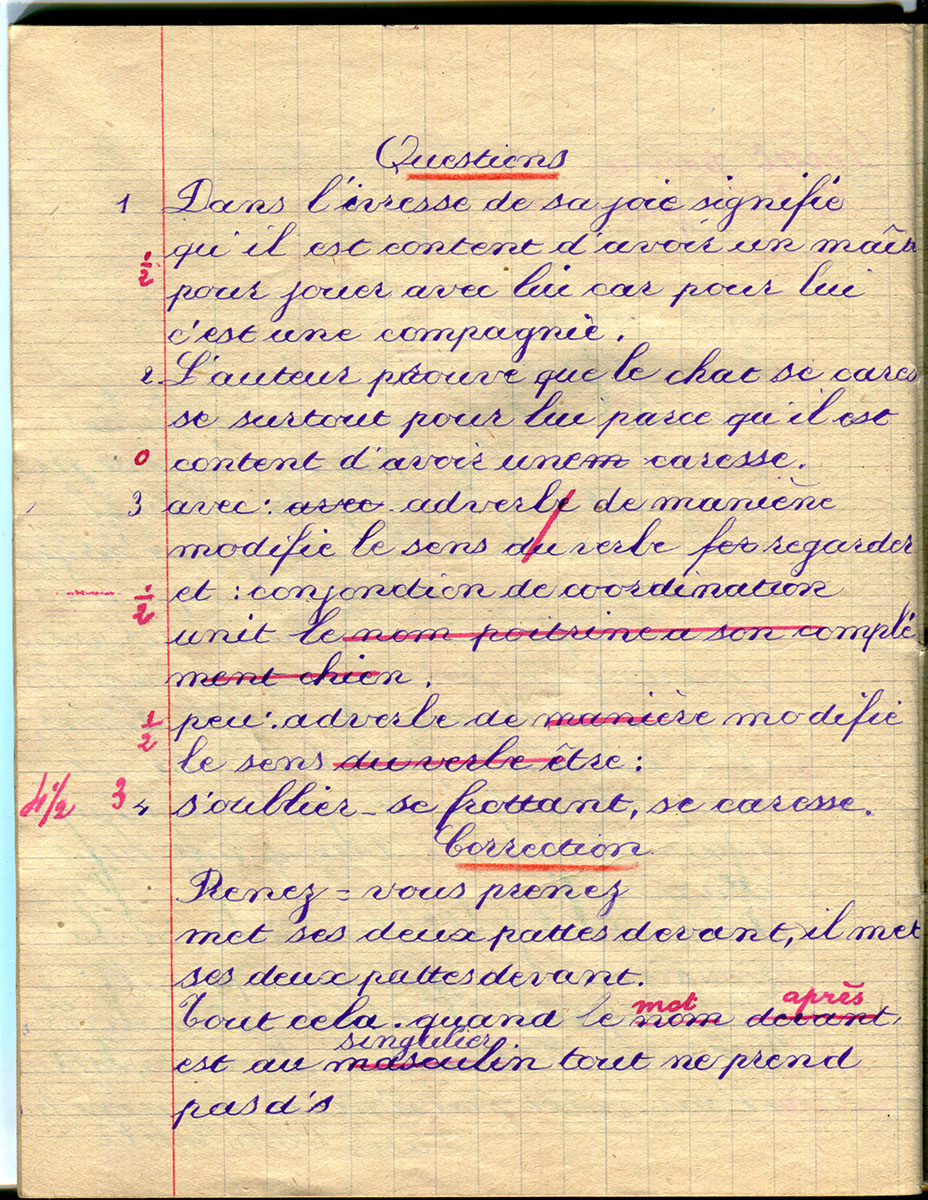 Questions
1 Dans l'ivresse de sa joie signifie
qu'il est content d'avoir un maît
1/2
pour jouer avec lui car pour lui
c'est une compagnie.
2 L'auteur prouve que le chat se cares
se surtout pour lui parce qu'il est
0 content d'avoir une caresse.
3 avec : avec adverbe de manière
modifie le sens du verbe regarder
1/2 et : conjonction de coordination
unit le nom poitrine a son complé
ment chien.
1/2 peu : adverbe de manière modifie
le sens du verbe être :
4 1/2 3 4 s'oublier - se frottant, se caresse.
Correction
Prenez = vous prenez
met ses deux pattes devant, il met
ses deux pattes devant.
mot après
Tout cela. quand le nom devant,
singulier
est au masculin tout ne prend
pas d's